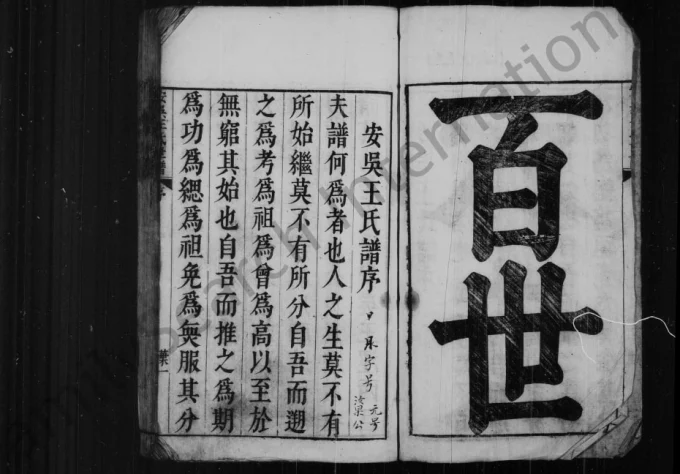 百世
安吳王氏譜序
夫譜何爲者也人之生莫不有
所始繼莫不有所分自吾而遡
之爲考爲祖爲曾爲高以至於
無窮其始也自吾而推之爲期
爲功爲緦爲祖免爲無服其分